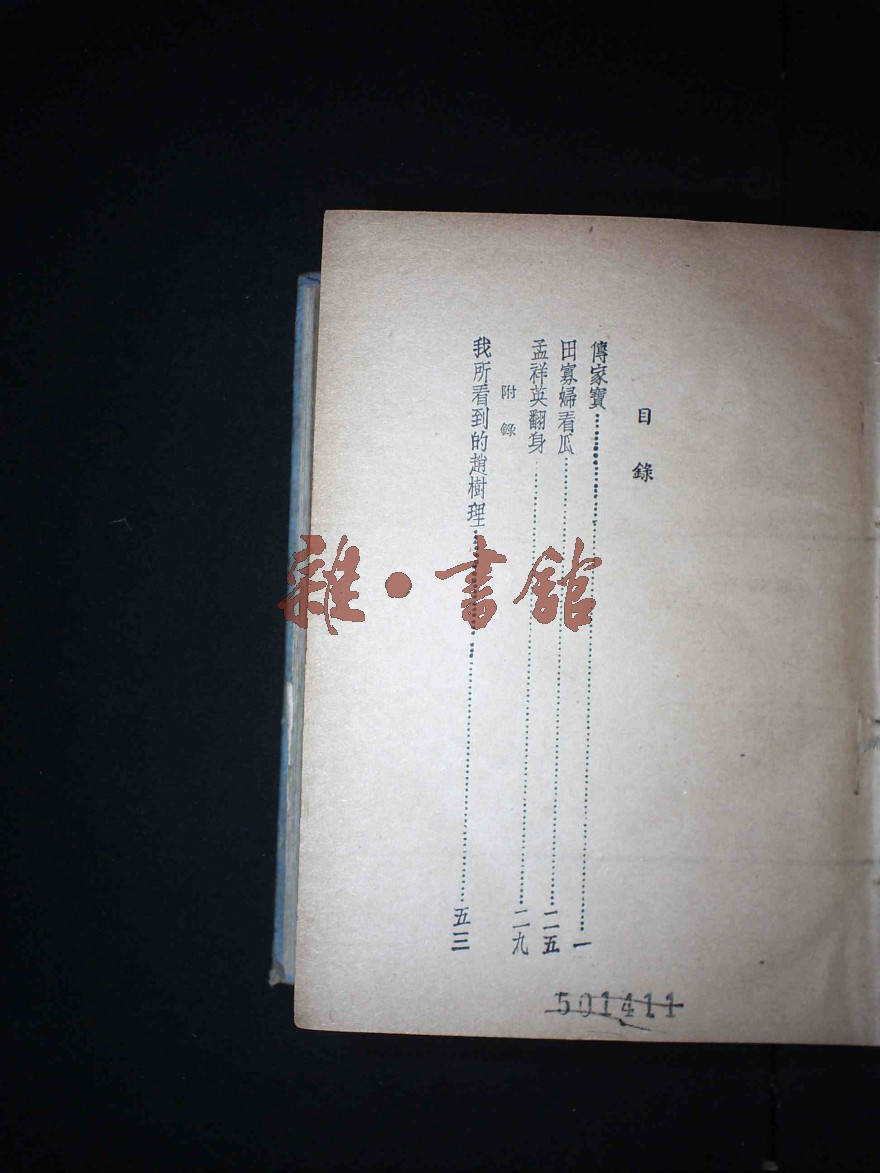 目錄
傳家寶…………一
田寡婦看瓜…………二五
孟祥英翻身…………二九
附錄
我所看到的趙樹理…………五三
501411
雜·書館